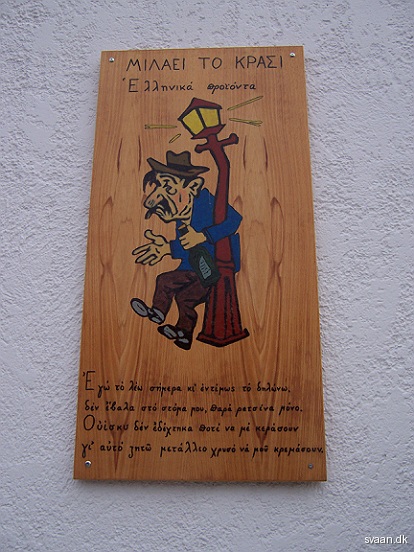 ΜΙΛΑΕΙ ΤΟ ΚΡΑΣΙ
Ἑλληνικά προϊόντα
Ἐγώ τό λέω σήμερα κι' ἐντίμως τό δηλώνω,
δέν ἔβαλα στό στόμα μου, παρά ρετσίνα μόνο.
Οὐίσκυ δέν ἐδέχτηκα ποτέ νά μέ κεράσουν
γι' αὐτό ζητῶ μετάλλιο χρυσό νά μοῦ κρεμάσουν.
svaan.dk